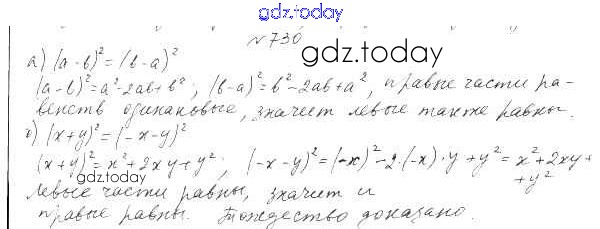 gdz.today
№730
gdz.today
а) (а-в)²=(в-а)²
(а-в)²=а²-2ав+в²; (в-а)²=в²-2ав+а², правые части ра-
венств одинаковые, значит левые также равны.
б) (x+y)²=(-x-y)²
(x+y)²=x²+2xy+y²; (-x-y)²=(-x)²-2·(-x)·y+y²=x²+2xy+
+y²
gdz.today
левые части равны, значит и
правые равны. Тождество доказано.